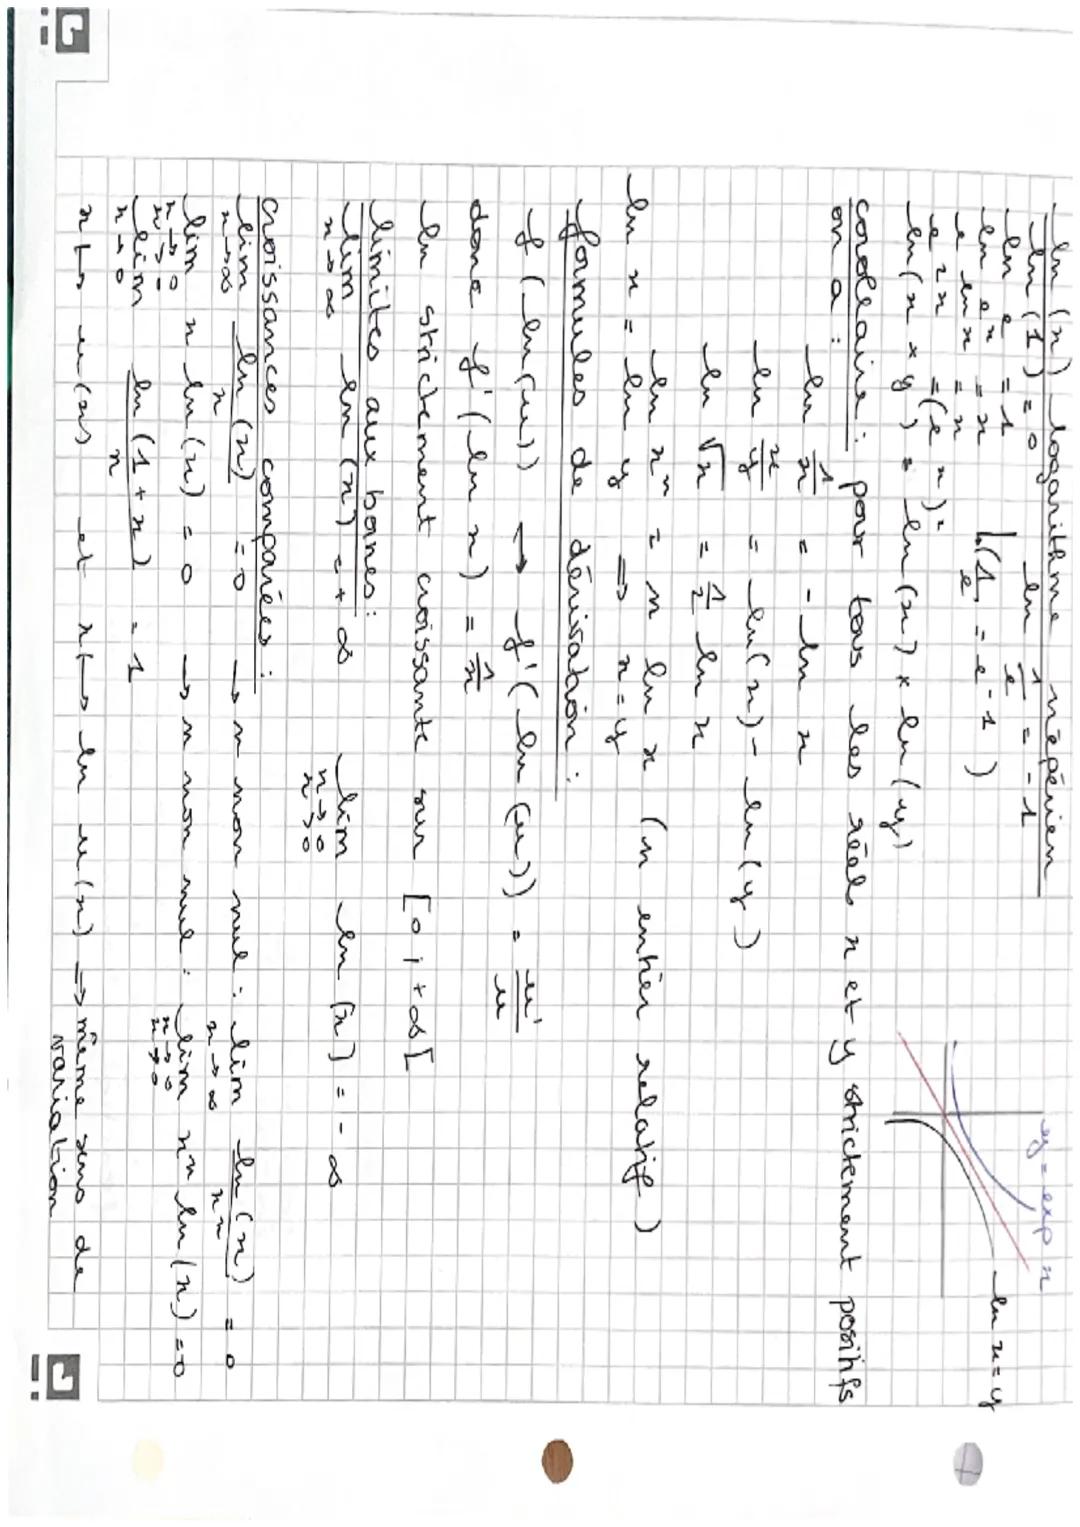 ln (x) logarithme népérien
ln (1) = 0 ln 1/e = -1
ln e = 1 (1/e = e^-1)
ln e^x = x
e^ln x = x
e^2x = (e^x)²
ln (x × y) = ln (x) × ln (y)
y = exp x
ln x = y
corollaire : pour tous les réels x et y strictement positifs
on a :
ln 1/x = - ln x
ln x/y = ln(x) - ln(y)
ln √x = 1/2 ln x
ln x^n = n ln x (n entier relatif)
ln x = ln y => x = y
formules de dérivation :
f (ln(u)) → f'(ln (u)) = u'/u
donc f'(ln x) = 1/x
ln strictement croissante sur [0 ; +∞[
limites aux bornes :
lim x→∞ ln (x) = +∞ lim x→0 x>0 ln (x) = -∞
croissances comparées :
lim x→∞ ln (x)/x = 0 → n non nul : lim x→∞ ln (x)/x^n = 0
lim x→0 x>0 x ln (x) = 0 → n non nul : lim x→0 x>0 x^n ln (x) = 0
lim x→0 ln (1+x)/x = 1
x ↦ u(x) et x ↦ ln u(x) => même sens de
variation